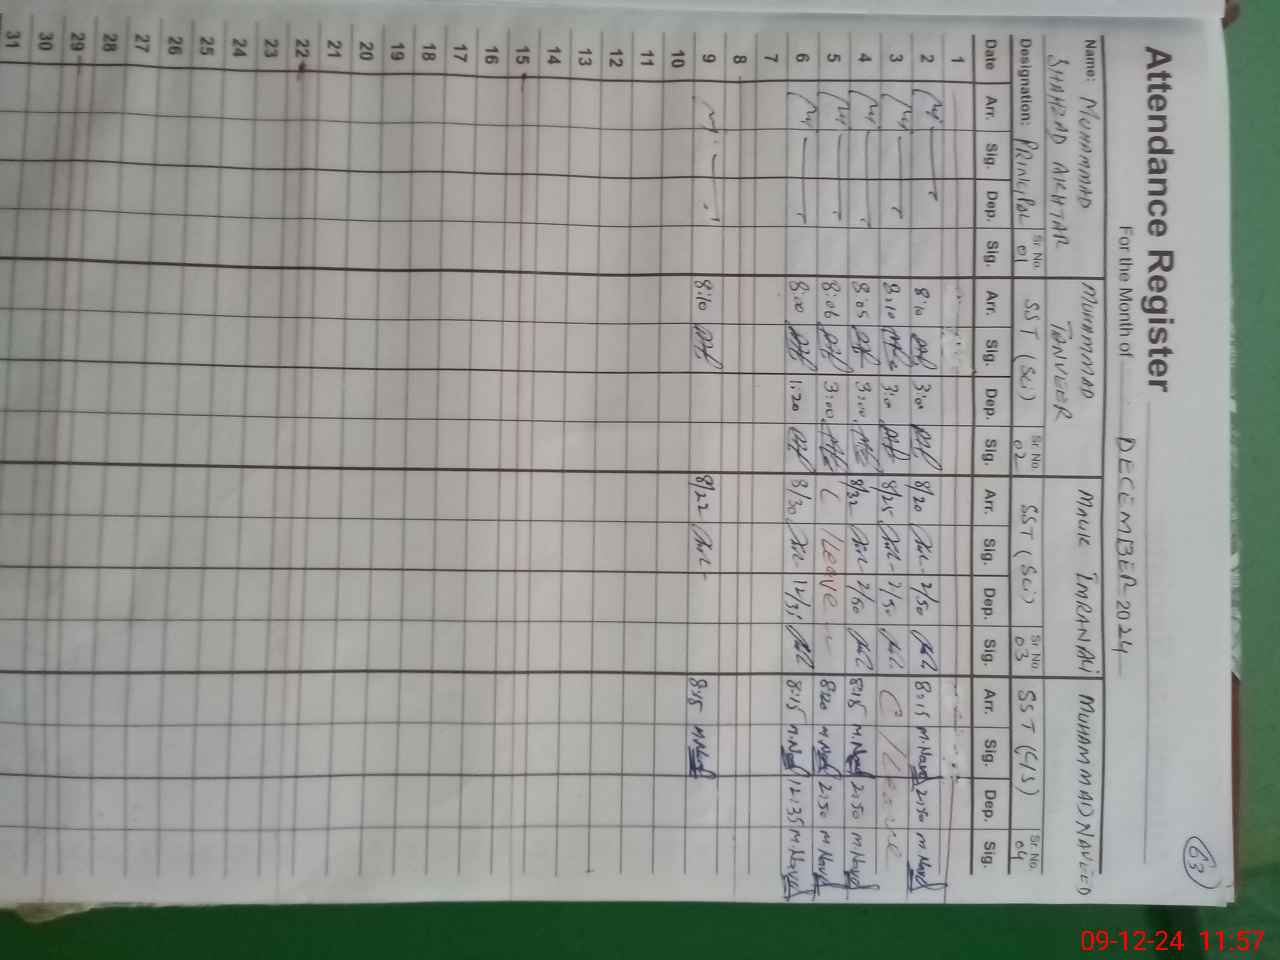 63
Attendance Register
For the Month of DECEMBER 2024
Name: MUHAMMAD SHAHZAD AKHTAR MUHAMMAD TANVEER MALIK IMRAN ALI MUHAMMAD NAVEED
Designation: PRINCIPAL Sr. No. 01 SST (Sci) Sr. No. 02 SST (Sci) Sr. No. 03 SST (C/S) Sr. No. 04
Date Arr. Sig. Dep. Sig. Arr. Sig. Dep. Sig. Arr. Sig. Dep. Sig. Arr. Sig. Dep. Sig.
1
2 8:10 3:00 8/20 2/50 8:15 M.Naved 2:50 M.Naved
3 8:10 3:00 8/25 2/50 C/Leave
4 8:05 3:00 8/32 2/50 8:15 M.Naved 2:50 M.Naved
5 8:06 3:00 C/Leave 8:20 M.Naved 2:50 M.Naved
6 8:00 1:20 8/30 8:15 M.Naved 12:35 M.Naved
7
8
9 8:10 8/22 8:15 M.Naved
10
11
12
13
14
15
16
17
18
19
20
21
22
23
24
25
26
27
28
29
30
31
09-12-24 11:57